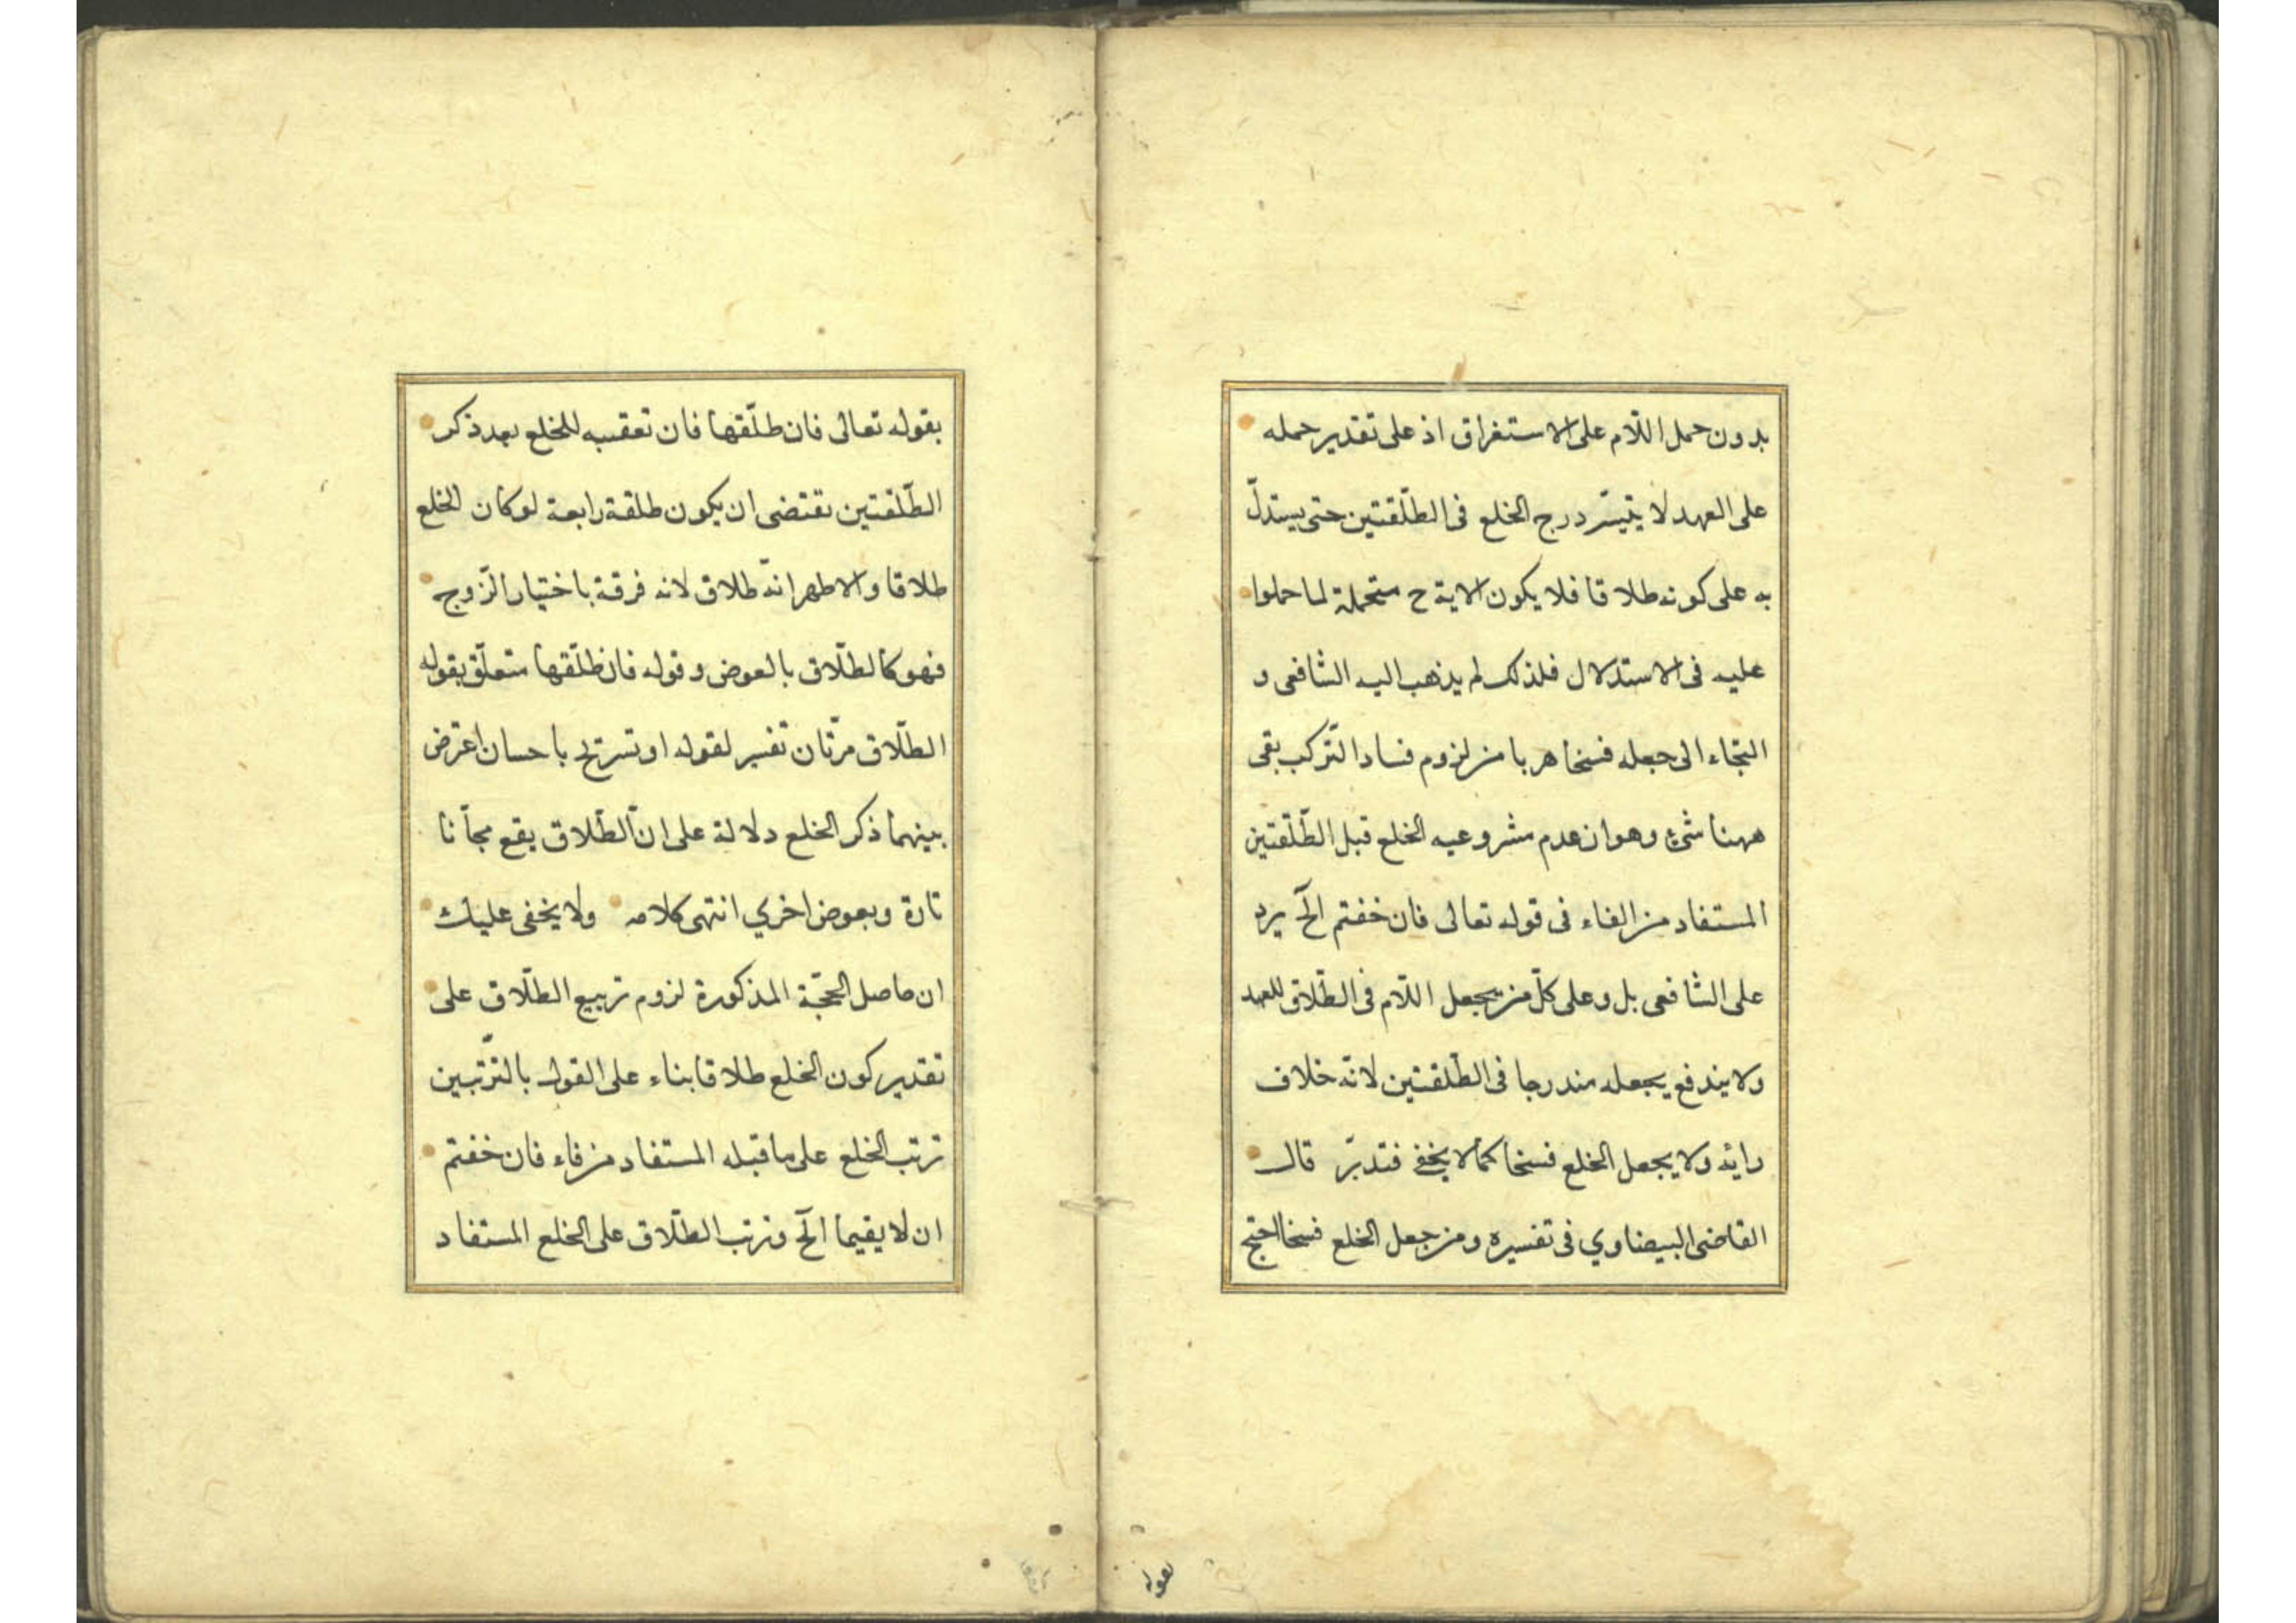 بدون حمل اللّام على الاستغراق اذ على تقدير حمله
على العهد لا يتيسّر درج الخلع فى الطّلقتين حتى يستدلّ
به على كونه طلاقا فلا يكون الاية ح متحملة لما حملوا
عليه فى الاستدلال فلذلك لم يذهب اليه الشافعى و
التجاء الى جعله فسخا هربا من لزوم فساد التّركب بقى
ههنا شئ وهو ان عدم مشروعيه الخلع قبل الطّلقتين
المستفاد من الفاء فى قوله تعالى فان خفتم الخ يرد
على الشافعى بل وعلى كلّ من يجعل اللّام فى الطّلاق للعهد
ولا يندفع يجعله مندرجا فى الطّلقتين لانّه خلاف
رايه ولا يجعل الخلع فسخا كما لا يخفى فتدبّر قال
القاضى البيضاوي فى تفسيره ومن جعل الخلع فسخا احتج
بقوله
بقوله تعالى فان طلّقها فان تعقبيه للخلع بعد ذكر
الطّلقتين تقتضى ان يكون طلقة رابعة لو كان الخلع
طلاقا والاظهر انّه طلاق لانه فرقة باختيار الزّوج
فهو كالطّلاق بالعوض وقوله فان طلّقها متعلّق بقوله
الطّلاق مرّتان تفسير لقوله او تسريح باحسان اعترض
بينهما ذكر الخلع دلالة على انّ الطّلاق يقع مجّانا
تارة وبعوض اخري انتهى كلامه ولا يخفى عليك
ان حاصل الحجّة المذكورة لزوم تربيع الطّلاق على
تقدير كون الخلع طلاقا بناء على القول بالترّتبين
ترتب الخلع على ما قبله المستفاد من فاء فان خفتم
ان لا يقيما الخ وترتب الطّلاق على الخلع المستفاد